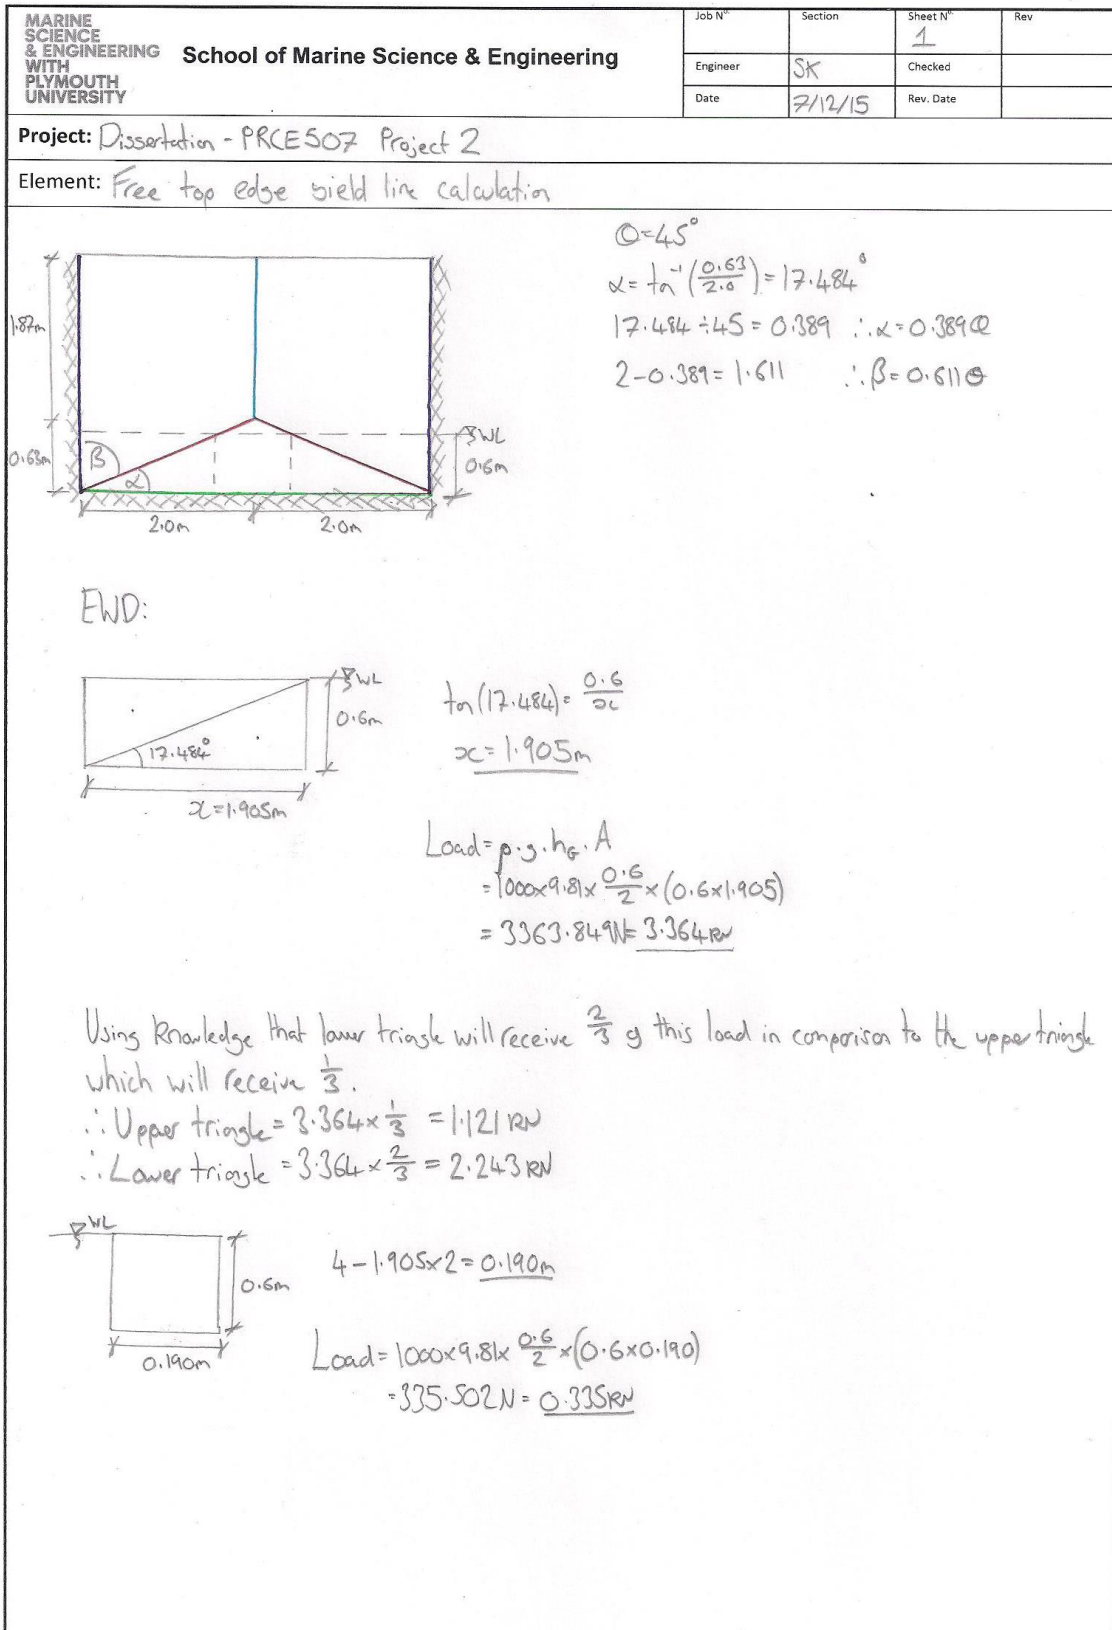 MARINE
SCIENCE
& ENGINEERING
WITH
PLYMOUTH
UNIVERSITY
School of Marine Science & Engineering
Job Nº.
Section
Sheet Nº.
1
Rev
Engineer
SK
Checked
Date
7/12/15
Rev. Date
Project: Dissertation - PRCE507 Project 2
Element: Free top edge yield line calculation
1.87m
0.63m
β
α
WL
0.6m
2.0m 2.0m
Θ=45°
α = tan⁻¹(0.63/2.0) = 17.484°
17.484 ÷ 45 = 0.389 ∴ α = 0.389Θ
2 - 0.389 = 1.611 ∴ β = 0.611Θ
EWD:
WL
0.6m
17.484°
x=1.905m
tan(17.484) = 0.6/x
x = 1.905m
Load = ρ.g.hG.A
= 1000×9.81×0.6/2×(0.6×1.905)
= 3363.849N = 3.364kN
Using knowledge that lower triangle will receive 2/3 of this load in comparison to the upper triangle
which will receive 1/3.
∴ Upper triangle = 3.364 × 1/3 = 1.121 kN
∴ Lower triangle = 3.364 × 2/3 = 2.243 kN
WL
0.6m
0.190m
4 - 1.905×2 = 0.190m
Load = 1000×9.81×0.6/2×(0.6×0.190)
= 335.502N = 0.335kN